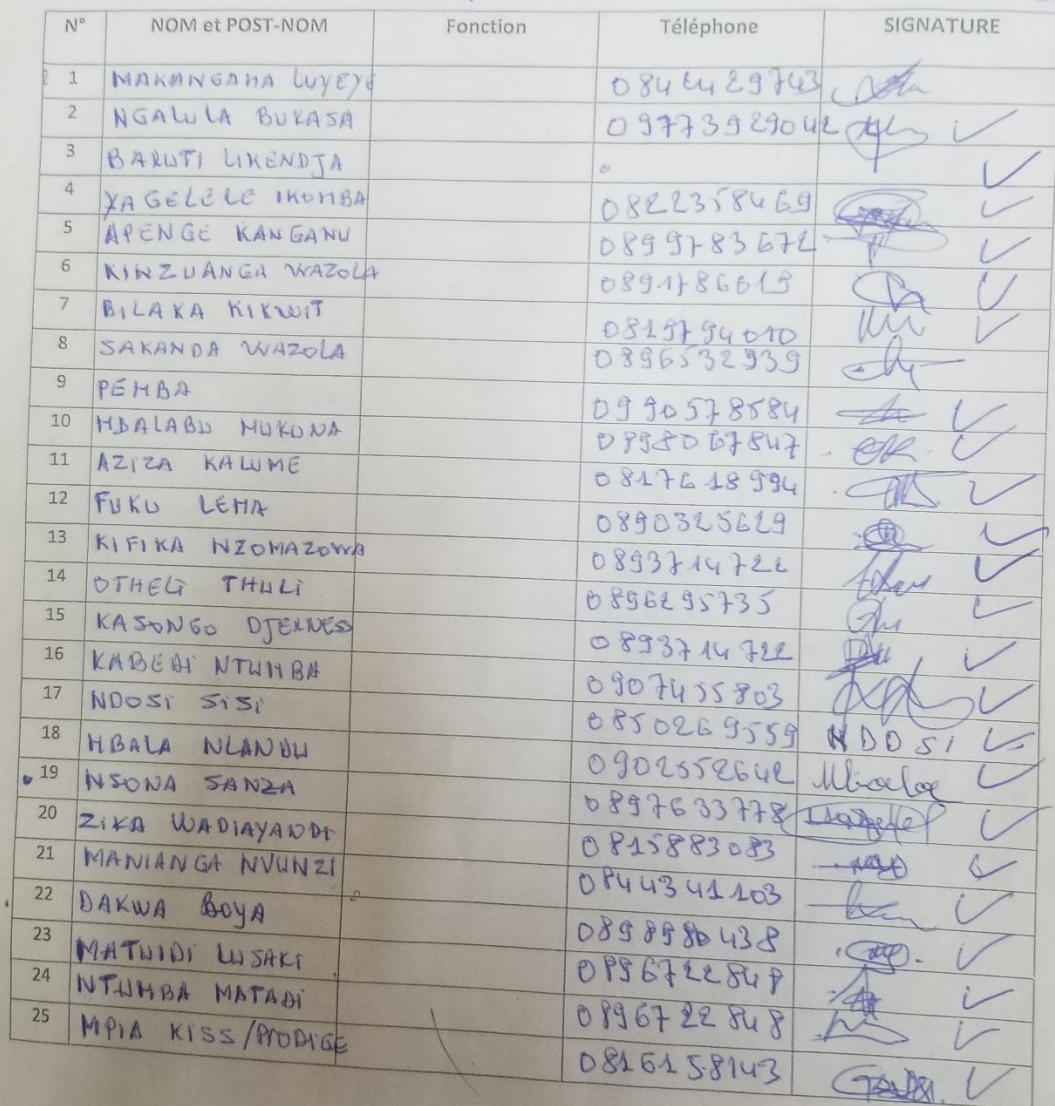 N° NOM et POST-NOM Fonction Téléphone SIGNATURE
1 MAKANGAMA LUYEYE 0844429743
2 NGALULA BUKASA 09773929042
3 BARUTI LIKENDJA
4 YAGELELE IKOMBA 0822358469
5 APENGE KANGANU 0899783672
6 KINZUANGA WAZOLA 0891786619
7 BILAKA KIKWIT 0819794010
8 SAKANDA WAZOLA 0896532939
9 PEMBA 0990578584
10 MBALABU MUKUNA 0898067847
11 AZIZA KALUME 0817618994
12 FUKU LEMA 0890325629
13 KIFIKA NZOMAZOWA 0893714722
14 OTHELI THULI 0896295735
15 KASONGO 0893714722
16 KABEDI NTUMBA 0907455803
17 NDOSI SISI 0850269559 NDOSI
18 MBALA NLANDU 0902552642 Mbala
19 NSONA SANZA 0897633778
20 ZIKA WADIAYANDI 0815883083
21 MANIANGA NVUNZI 0844341103
22 DAKWA BOYA 0898980438
23 MATUIDI LUSAKI 0896722848
24 NTUMBA MATADI 0896722848
25 MPIA KISS/PRODIGE 0816158143